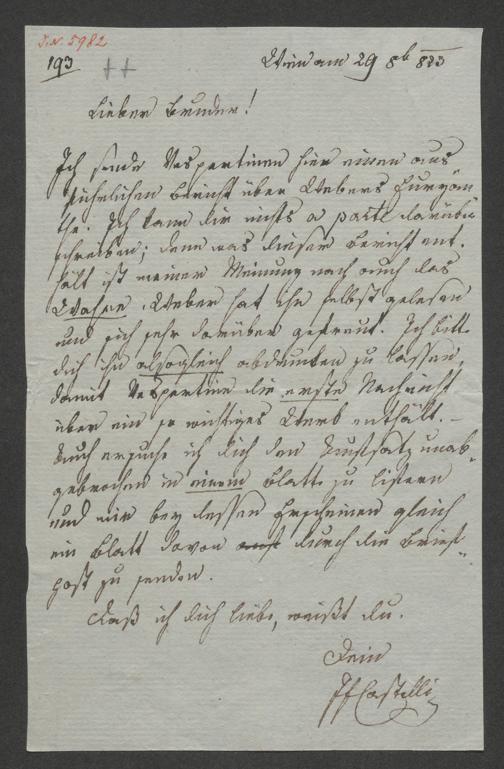 I.N. 5982
193
Wien am 29 8b 823
Lieber Bruder!
Ich sende Vespertinen hier einen aus
führlichen Bericht über Webers Euryan
the. Ich kann dir nichts a parte darüber
schreiben; denn was dieser Bericht ent.
hält ist meiner Meinung nach auch das
Wahre Weber hat ihn selbst gelesen
und sich sehr darüber gefreut. Ich bitte
dich ihn alsogleich abdrucken zu lassen,
damit Vespertine die erste Nachricht
über ein so wichtiges Werk enthält. –
Auch ersuche ich dich den Aufsatz unab-
gebrochen in einem Blatte zu liefern
und mir bey dessen Erscheinen gleich
ein Blatt davon durch die Brief-
post zu senden.
Daß ich dich liebe, weißt du.
Dein
JFCastelli